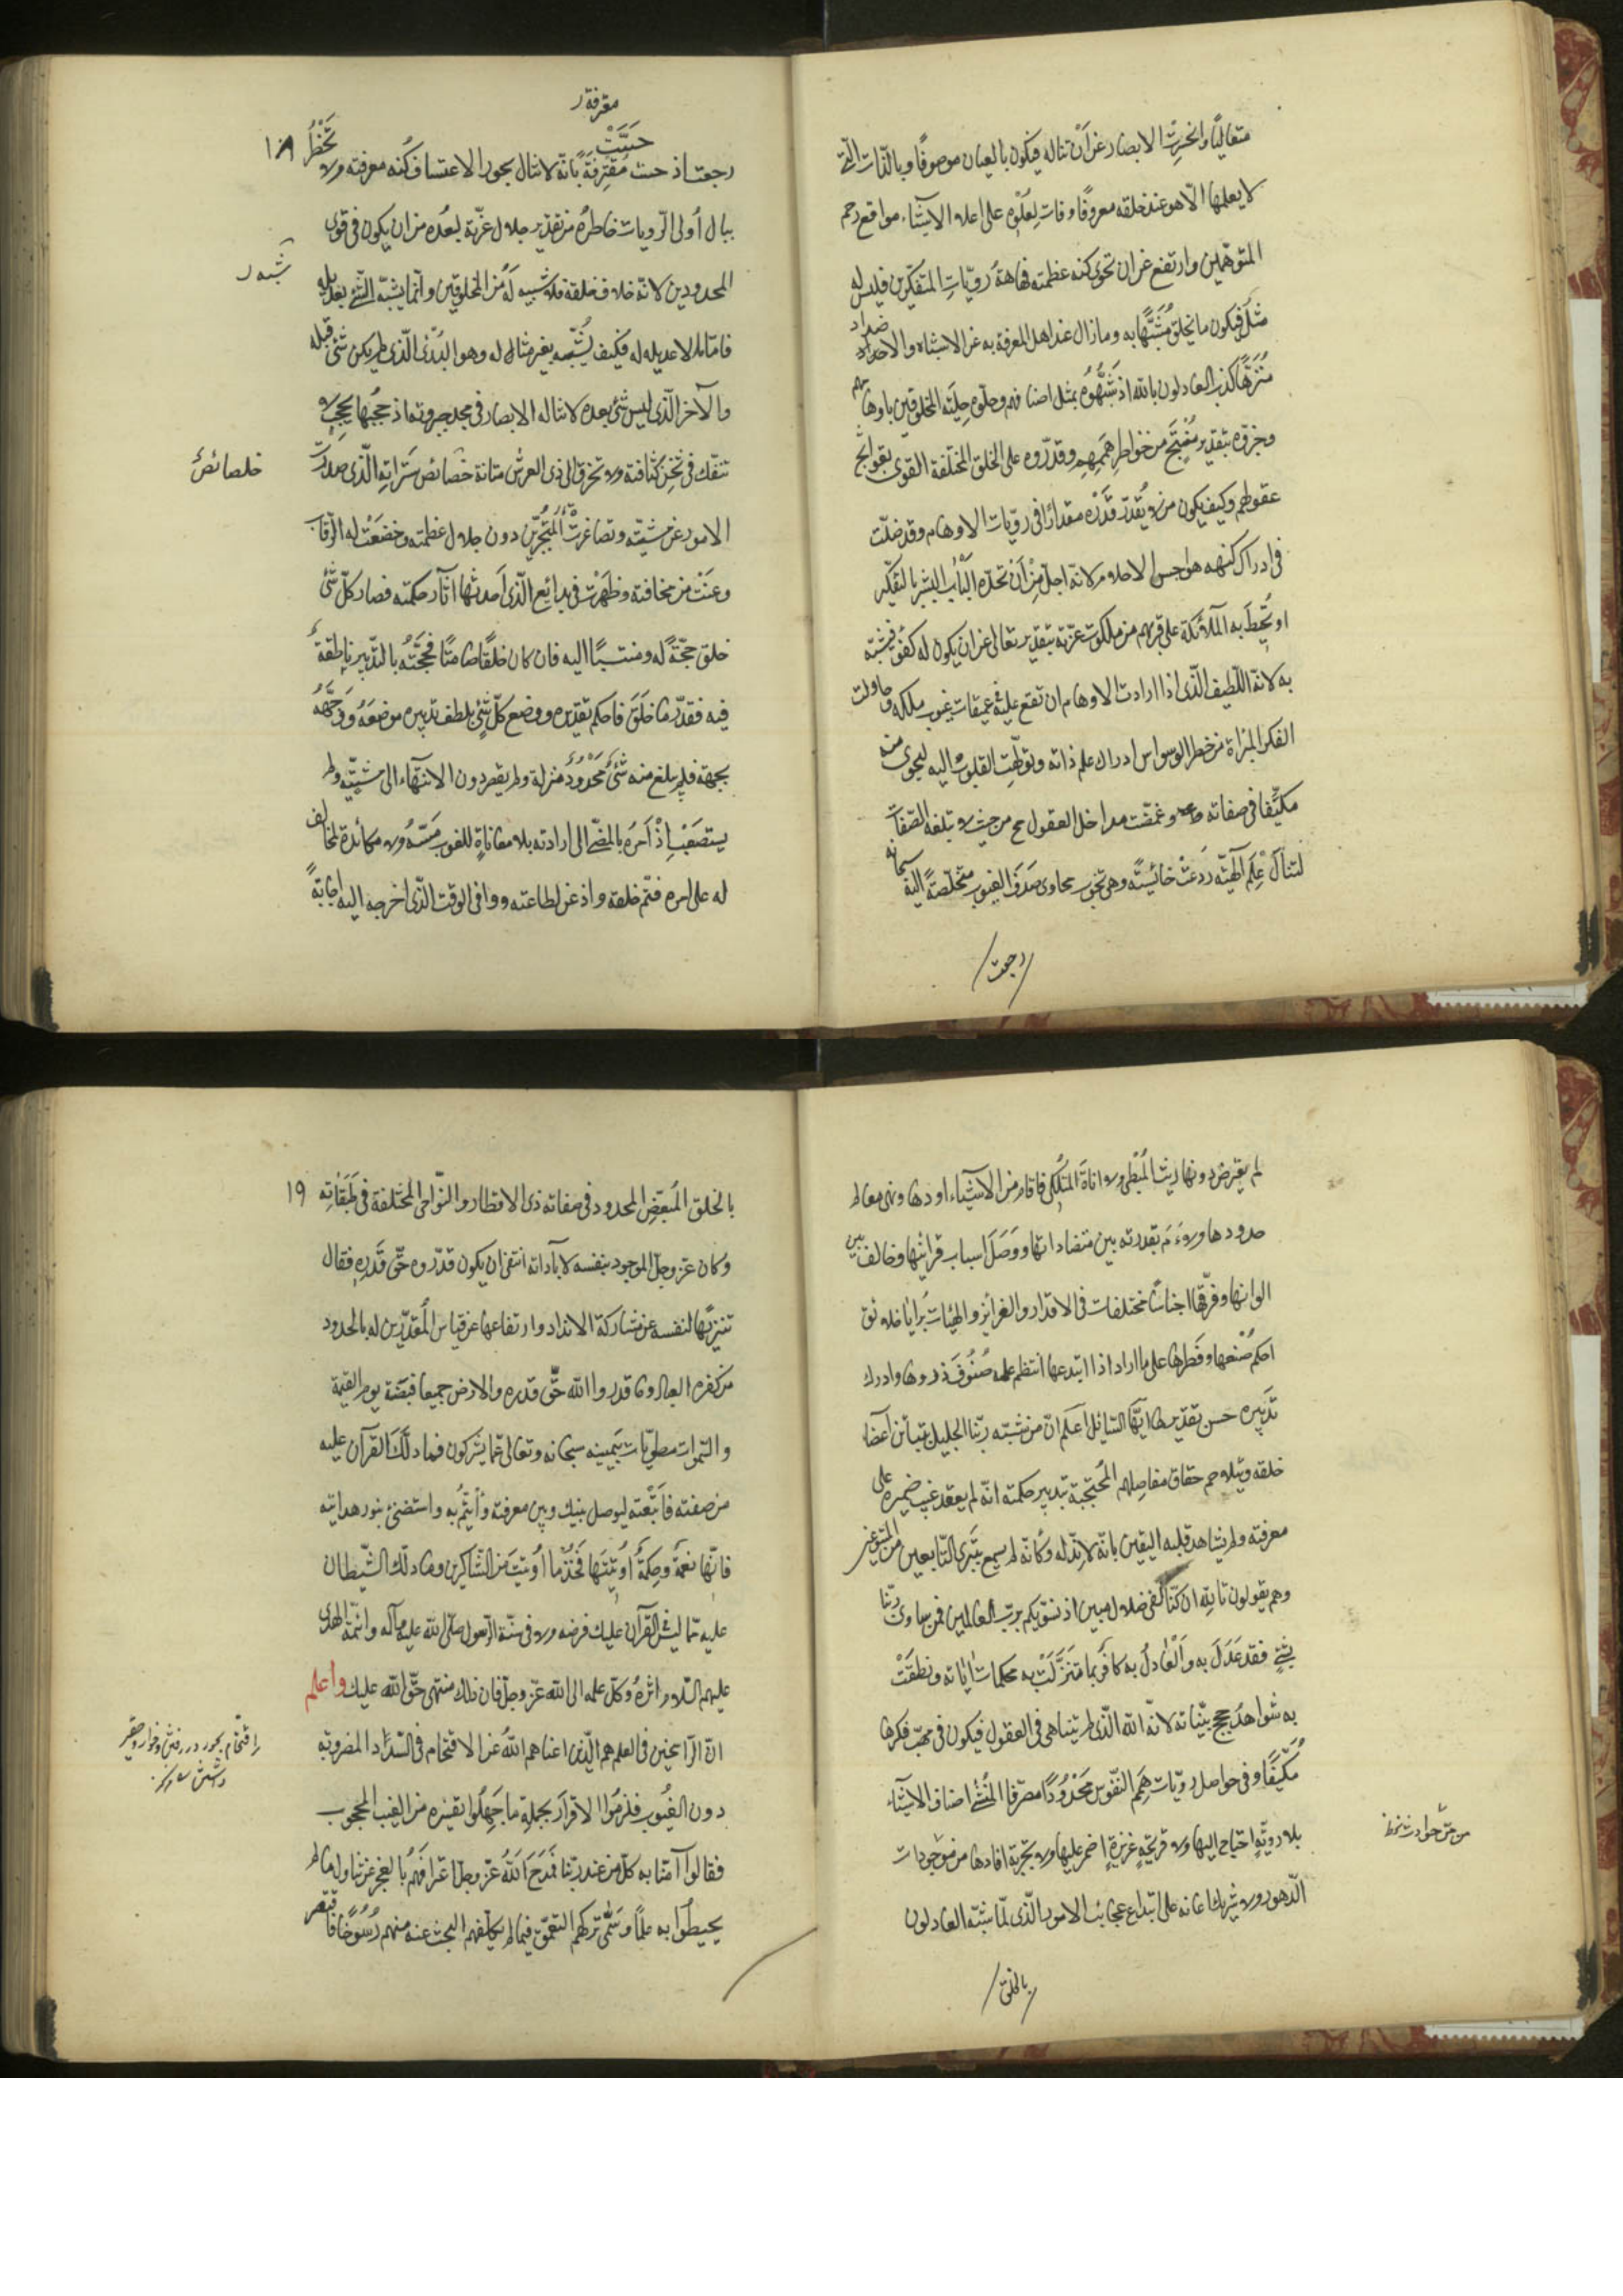 متعاليًا وانحسرت الابصار عن أن تناله فيكون بالعيان موصوفًا وبالذّات الّتي
لا يعلمها الّا هو عند خلقه معروفًا وفات لعلوّه على اعلاء الاشياء مواقع رجم
المتوهّمين وارتفع عن ان تحوى كنه عظمته فهاهة رويّات المتفكّرين فليس له
مثل فيكون ما يخلق مُشبَّهًا به وما زال عند اهل المعرفة به عن الاشباه والاضداد
منزّهًا كذب العادلون بالله اذ شبّهوه بمثل اصنافهم وحلّوه حلية المخلوقين باوهامهم
وجزّوه بتقدير منتج من خواطر هممهم وقدّروه على الخلق المختلفة القوى بقرائح
عقولهم وكيف يكون من لا يُقدّر قدره مقدارًا فى رويّات الاوهام وقد ضلّت
فى ادراك كنهه هواجس الاحلام لانّه اجلّ من أن تحدّه ألباب البشر بالتفكير
او تُحيط به الملائكة على قربهم من ملكوت عزّته بتقدير تعالى عن ان يكون له كفو فيشبّه
به لانّه اللّطيف الّذى اذا ارادت الاوهام ان تقع عليه فى عميقات غيوب ملكه وحاولت
الفكر المبرّاة من خطر الوسواس ادراك علم ذاته وتولّهت القلوب اليه لتحوى منه
مكيّفا فى صفاته وغمضت مداخل العقول من حيث لا تبلغه الصّفات
لتنال علم الهيّته رُدعت خاسئةً وهى تجوب مهاوى سدف الغيوب متخلّصةً اليه سبحانه
/رجعت/
معرفة ر
حسّت
١٨
رجعت اذ جبهت معترفةً بانّه لا تنال بجور الاعتساف كنه معرفته ولا تخطُر
ببال أولى الرّويات خاطرةٌ من تقدير جلال عزّته لبُعده من ان يكون فى قوى
المحدودين لانّه خلاف خلقه فلا شبيه له من المخلوقين وانّما يشبّه الشّئ بعديله
شبه ر
فامّا ما لا عديل له فكيف يُشبّه بغير مثاله وهو البدئ الّذى لم يكن شئ قبله
والآخر الّذى ليس شئ بعده لا تناله الابصار فى مجد جبروته اذ حجبها بحجبٍ لا
تنفك فى ثخن كثافته ولا تخرق الى ذى العرش متانة خصائص ستراته الّذى صدرت
خلصائص
الامور عن مشيّته وتصاغرت عزّة المتجبّرين دون جلال عظمته وخضعت له الرّقاب
وعنت من مخافته وظهرت فى بدائع الّذى احدثها اثار حكمته فصار كلّ شئ
خلق حجّةً له ومنتسبًا اليه فان كان خلقًا صامتًا فحجّته بالتدبير ناطقةٌ
فيه فقدّر ما خلق فاحكم تقديره ووضع كلّ شئٍ بلطف تدبيره موضعه ووجّهه
بجهة فلم يبلغ منه شئ محدود منزلة ولم يقصر دون الانتهاء الى مشيّته ولم
يستصعب اذ امره بالمضىّ الى ارادته بلا معاناةٍ للغوب مسّه ولا مكائدة لمخالف
له على امره فتمّ خلقه واذعن لطاعته ووافى الوقت الّذى اخرجه اليه اجابةً
لم يعترض دونها ريث المبطى ولا اناة المتلكّى فاقام من الاشياء اودها ونهى معالم
حدودها ولاءم بقدرته بين متضاداتها ووصل اسباب قرائنها وخالف بين
الوانها وفرّقها اجناسًا مختلفات فى الاقدار والغرائز والهيئات برايا خلائق
احكم صُنعها وفطرها على ما اراد اذ ابتدعها انتظم علمه صنوف ذروها وادرك
تدبيره حسن تقديرها ايّها السّائل اعلم انّ من شبّه ربّنا الجليل بتباين اعضاء
خلقه وبتلاحم حقاق مفاصلهم المحتجبة بتدبير حكمته انّه لم يعقد غيب ضميره على
معرفته ولم يشاهد قلبه اليقين بانّه لا ندّ له وكانّه لم يسمع بتبرّى التّابعين من المتبوعين
وهم يقولون تالله ان كنّا لفى ضلال مبين اذ نسوّيكم بربّ العالمين فمن ساوى ربّنا
بشئٍ فقد عدل به والعادل به كافر بما تنزّلت به محكمات اياته ونطقت
به شواهد حجج بيّناته لانّه الله الّذى لم يتناهى فى العقول فيكون فى مهبّ فكرها
مُكيّفًا وفى حواصل رويّات همم النّفوس محدودًا مصرّفا المنشئ اصناف الاشياء
من مرّ حوادث نخط
بلا رويّةٍ احتاج اليها ولا قريحةٍ غريزةٍ اضمر عليها ولا تجربة افادها من موجودات
الدّهور ولا شريك اعانه على ابتداع عجائب الامور الّذى لمّا شبّه العادلون
/بالخلق/
١٩
بالخلق المُبعّض المحدود فى صفاته ذى الاقطار والنّواحى المختلفة فى طبقاته
وكان عزّ وجلّ الموجود بنفسه لا باداته انتفى ان يكون قدّروه حقّ قدره فقال
تنزيهًا لنفسه عن مشاركة الانداد وارتفاعها عن قياس المُقدّرين له بالحدود
من كفره العباد وما قدروا الله حقّ قدره والارض جميعا قبضته يوم القيمة
والسّموات مطويّات بيمينه سبحانه وتعالى عمّا يشركون فما دلّك القرآن عليه
من صفته فاتّبعه ليوصل بينك وبين معرفته وأتمّ به واستضئ بنور هدايته
فانّها نعمة وحكمة اوتيتها فخذ ما أوتيت وكن من الشّاكرين وما دلّك الشّيطان
عليه ممّا ليس فى القرآن عليك فرضه ولا فى سنّة الرّسول صلّى الله عليه وآله وائمّة الهدى
عليهم السّلام اثره وكل علمه الى الله عزّ وجلّ فان ذلك منتهى حقّ الله عليك واعلم
انّ الرّاسخين فى العلم هم الّذين اغناهم الله عن الاقتحام فى السّدد المضروبة
دون الغيوب فلزموا الاقرار بجملة ما جهلوا تفسيره من الغيب المحجوب
فقالوا آمنّا به كلّ من عند ربّنا فمدح الله عزّ وجلّ اعترافهم بالعجز عن تناول ما لم
يحيطوا به علمًا وسمّى تركهم التعمّق فيما لم يكلّفهم البحث عنه منهم رسوخًا فاقتصر